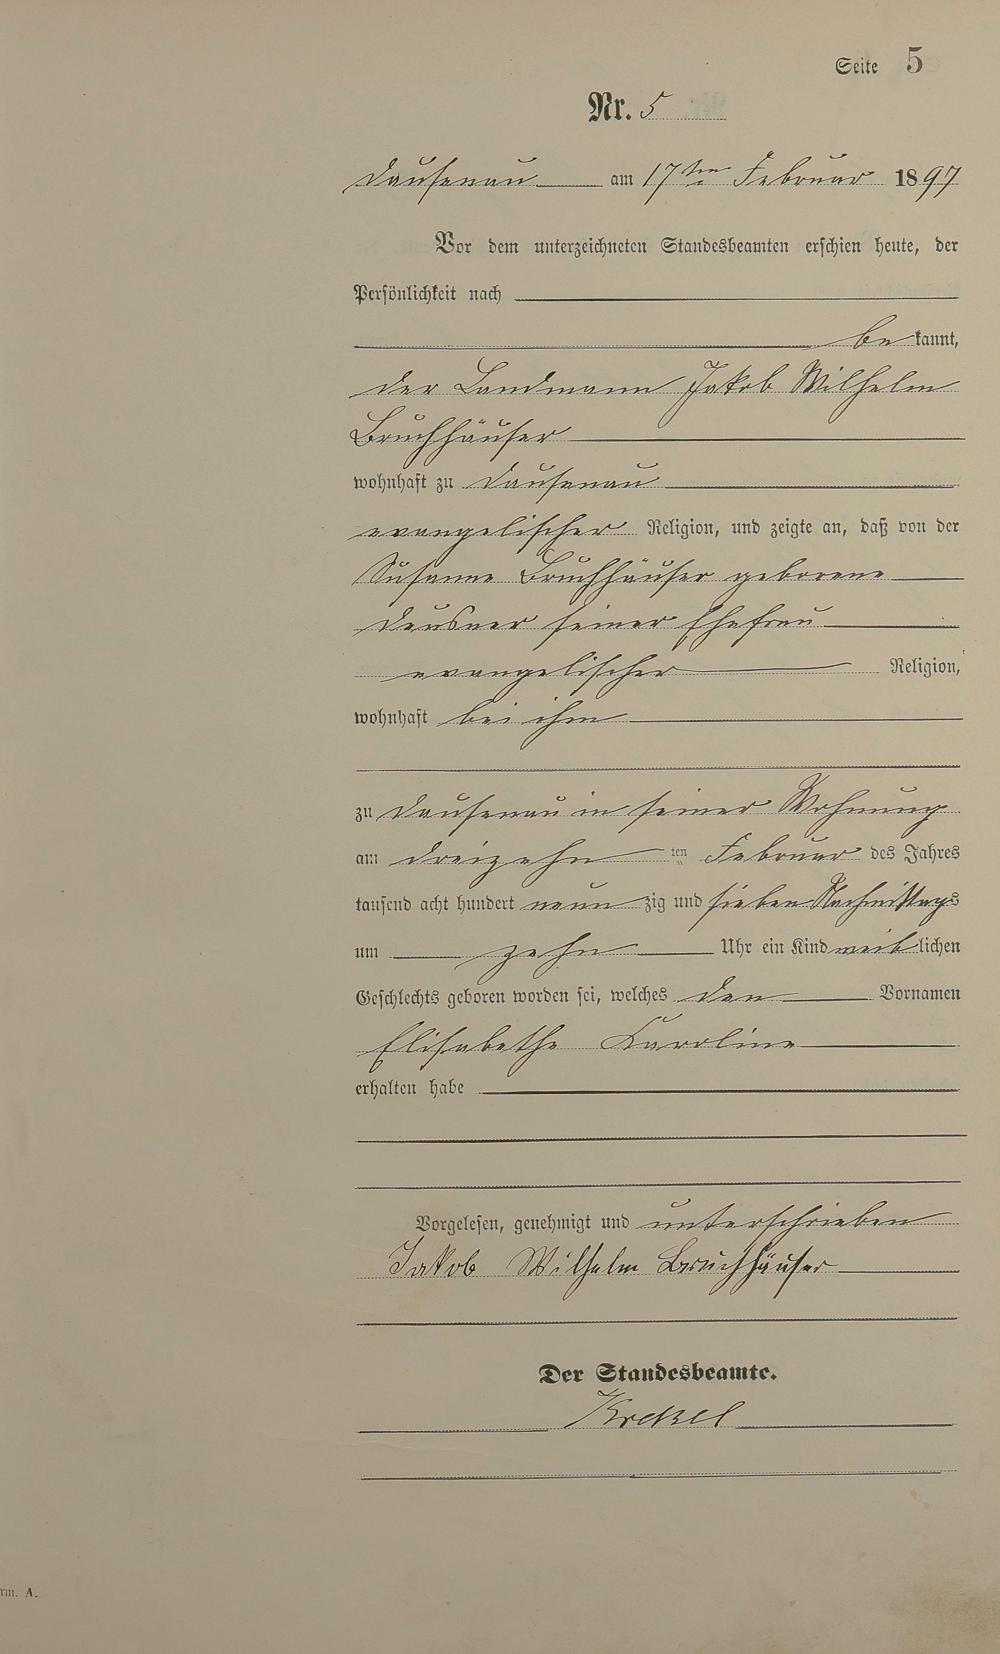 Seite 5
Nr. 5
Dausenau am 17ten Februar 1897
Vor dem unterzeichneten Standesbeamten erschien heute, der
Persönlichkeit nach
be kannt,
der Landmann Jakob Wilhelm
Bruchhäuser
wohnhaft zu Dausenau
evangelischer Religion, und zeigte an, daß von der
Susanne Bruchhäuser geborene
Deusner seiner Ehefrau
evangelischer Religion,
wohnhaft bei ihm
zu Dausenau in seiner Wohnung
am dreizehn ten Februar des Jahres
tausend acht hundert neun zig und sieben Nachmittags
um zehn Uhr ein Kind weiblichen
Geschlechts geboren worden sei, welches den Vornamen
Elisabethe Karoline
erhalten habe
Vorgelesen, genehmigt und unterschrieben
Jakob Wilhelm Bruchhäuser
Der Standesbeamte.
Krekel
rm. A.